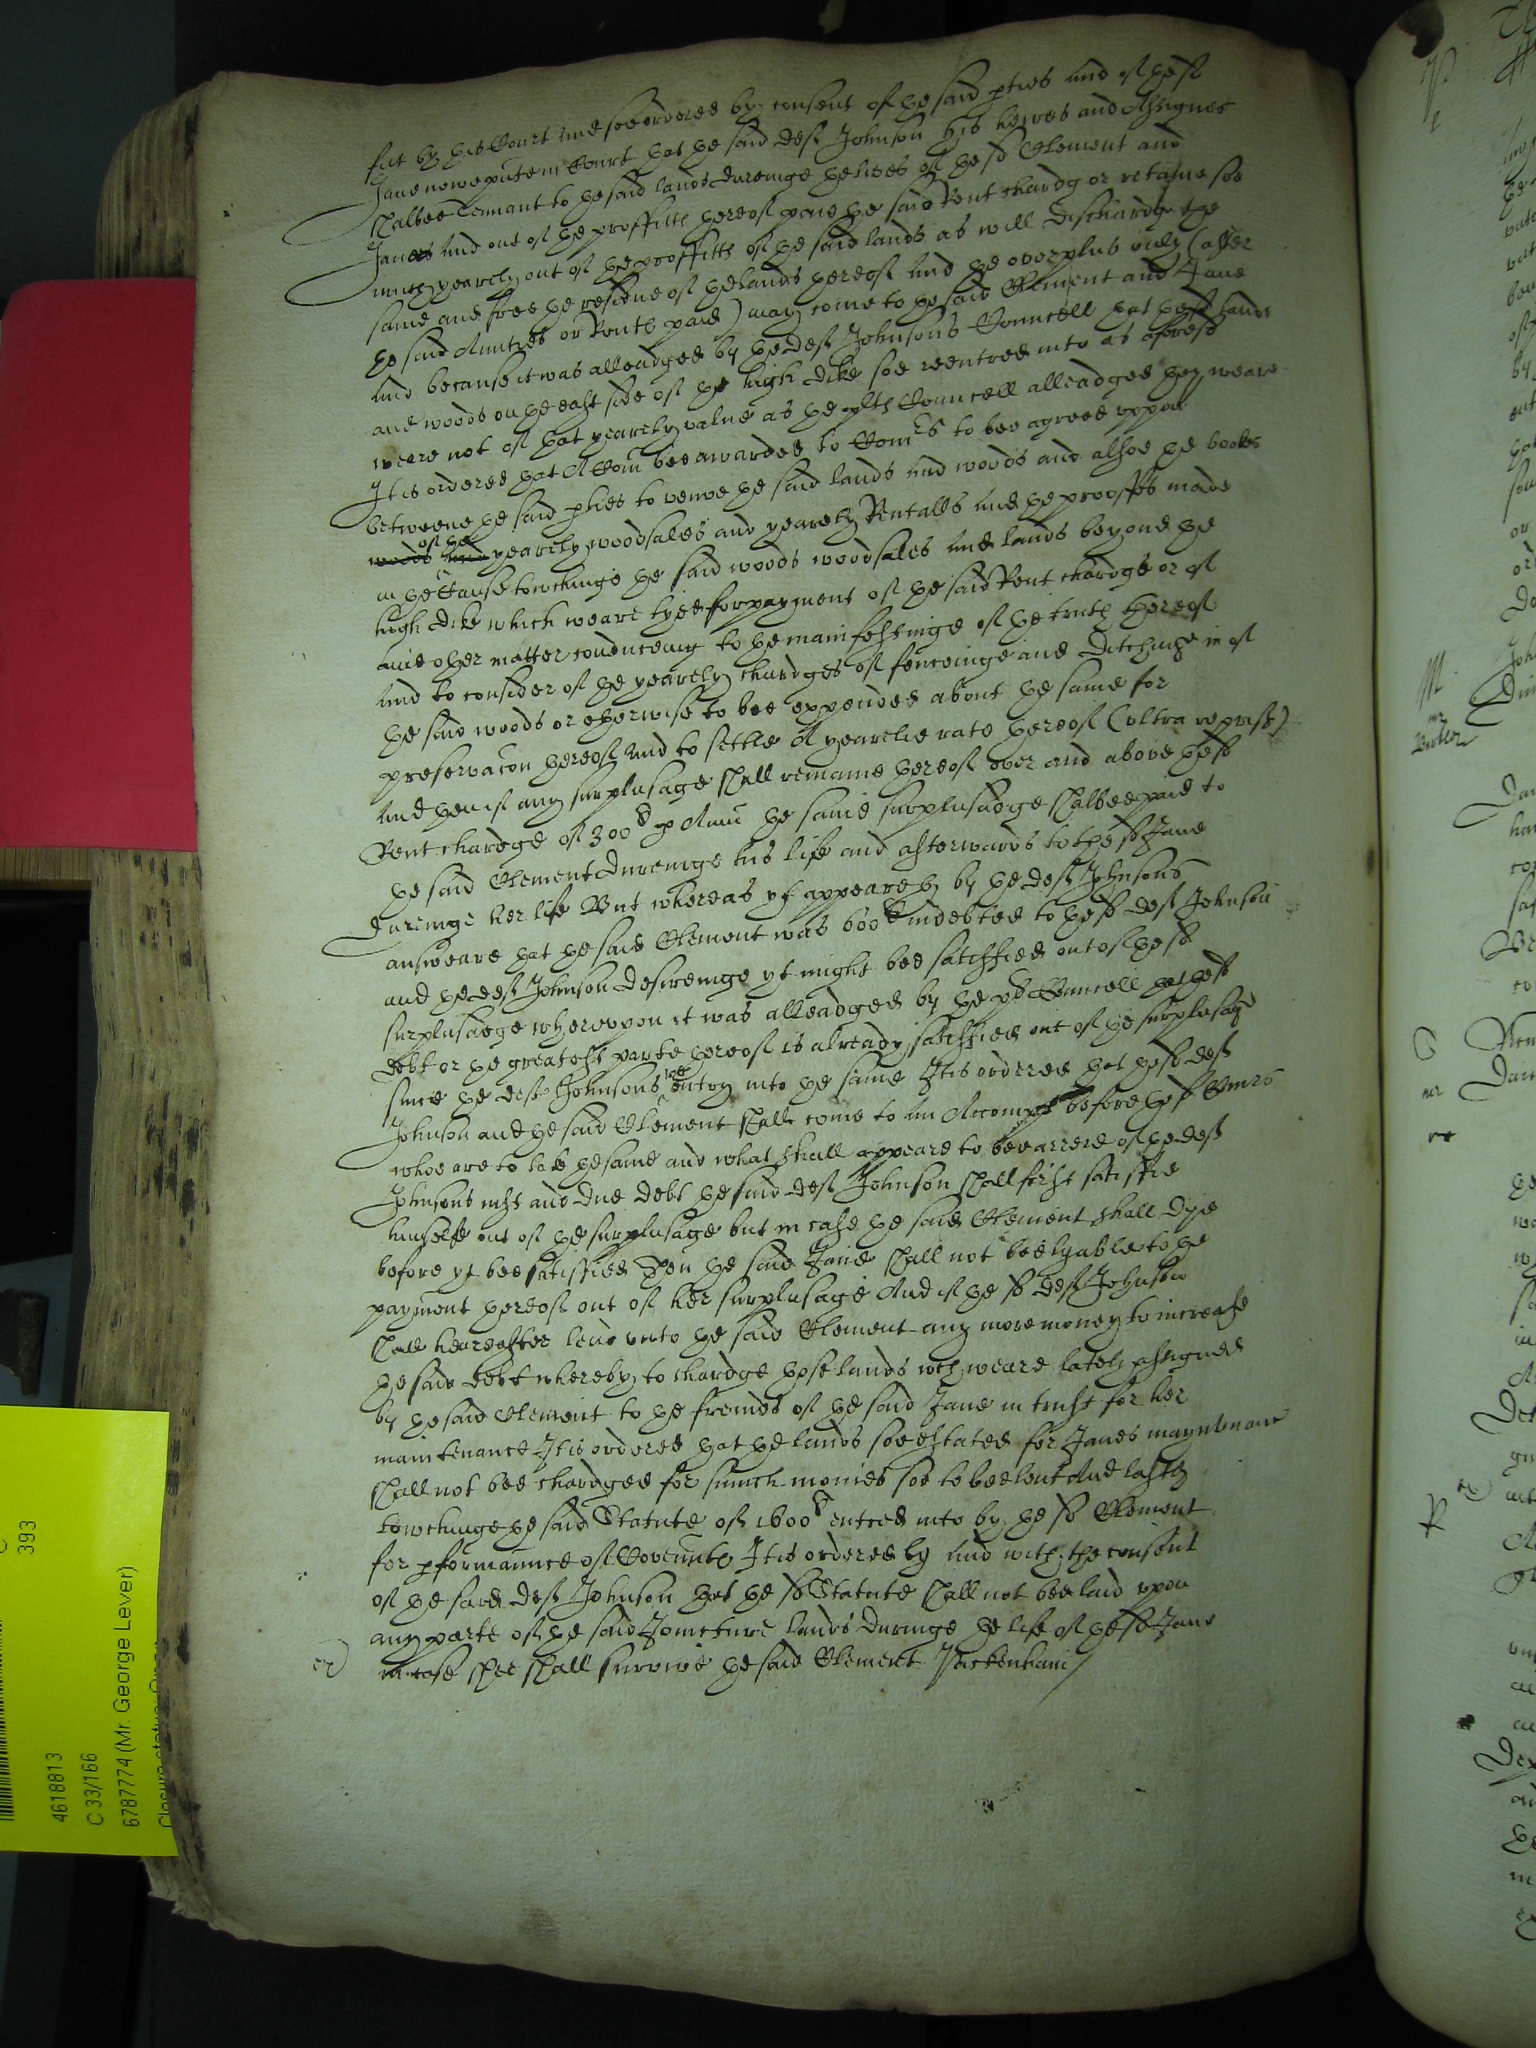 fitt by this Court and soe ordered by consent of the said pties and of the sd
Jane nowe p̱nte in Court that the said deft Johnson his heires and Assignes
shalbee Tennant to the said lands dureinge the lives of the sd Clement and
Jane And out of the proffitts thereof paie the said Rent chardg or retayne soe
much yearely out of the proffitts of the said lands as will dischardg the
same and free the residue of the lands thereof And the overplus only (after
the said Annties or Rents paid) may come to the said Clement and Jane
And because it was alleadged by the deft Johnsons Councell that the sd lands
and woods on the east side of the high dike soe reentred into as aforesd
weare not of that yearely value as the plts Councell alleadged they weare
It is ordered that A Com̃ bee awarded to Com̃rs to bee agreed uppon
betweene the said pties to veiwe the said lands and woods and alsoe the bookes
of the
woods and yearely woodsales and yearely Rentalls and the prooffes made
in the Cause towchinge the said woods woodsales and lands beyond the
high dike which weare tyed for payment of the said Rent chardge or of
anie other matter conduceing to the manifestinge of the truth thereof
And to consider of the yearely chardges of fenceinge and Ditchinge in of
the said woods or otherwise to bee expended about the same for
preservac̃on thereof And to settle A yearelie rate thereof (ultra repriss)
And then if any surplusage shall remaine thereof over and above the sd
Rent chardge of 300li p Ann̄ the same surplusadge shalbee paid to
the said Clement dureinge his life and afterwards to the sd Jane
dureinge her life But whereas yt appeareth by the deft Johnsons
answeare that the said Clement was 600li indebted to the sd deft Johnson
and the deft Johnson desireinge yt might bee satisffied out of the sd
surplusadge wherevpon it was alleadged by the pls Councell that the sd
debt or the greatest parte thereof is already satisffied out of the surplusage
since the deft Johnsons re entry into the same It is ordered that the sd deft
Johnson and the said Clement shall come to an Accompt before the sd Com̃rs
whoe are to take the same and what shall appeare to bee arrere of the deft
Johnsons just and due debt the said deft Johnson shall first satisfie
himselfe out of the surplusage but in case the said Clement shall dye
before yt bee satisfied then the said Jane shall not bee lyable to the
payment thereof out of her surplusage And if the sd deft Johnson
shall heareafter lend unto the said Clement any more money to increase
the said debt whereby to chardge those lands wch weare lately assigned
by the said Clement to the freinds of the said Jane in trust for her
maintenance It is ordered that the lands soe estated for Janes mayntenance
shall not bee chardged for such monies soe to bee lent And lastly
towchinge the said Statute of 1600li entred into by the sd Clement
for pformaunce of Coven̄ts It is ordered by and with the consent
of the said deft Johnson that the sd Statute shall not bee laid upon
any parte of the said Joincture lands duringe the life of the sd Jane
in case shee shall survive the said Clement Packenham
393
4618813
C 33/166
6787774 (Mr. George Lever)
Closure status: Open
mr
Butler